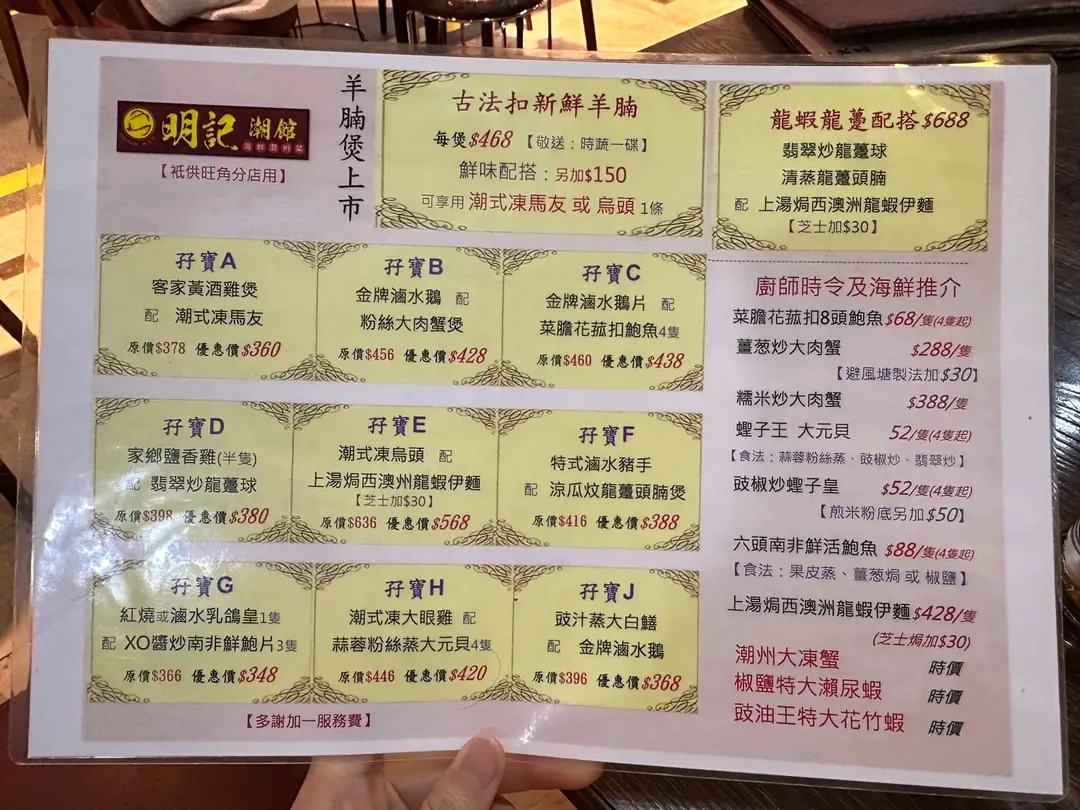 明記 潮館
海鮮潮州菜
【祇供旺角分店用】
羊腩煲上市
古法扣新鮮羊腩
每煲$468 【敬送：時蔬一碟】
鮮味配搭：另加$150
可享用 潮式凍馬友 或 烏頭 1條
龍蝦龍躉配搭$688
翡翠炒龍躉球
清蒸龍躉頭腩
配 上湯焗西澳洲龍蝦伊麵
【芝士加$30】
孖寶A
客家黃酒雞煲
配 潮式凍馬友
原價$378 優惠價$360
孖寶B
金牌滷水鵝 配
粉絲大肉蟹煲
原價$456 優惠價$428
孖寶C
金牌滷水鵝片 配
菜膽花菰扣鮑魚4隻
原價$460 優惠價$438
孖寶D
家鄉鹽香雞(半隻)
配 翡翠炒龍躉球
原價$398 優惠價$380
孖寶E
潮式凍烏頭 配
上湯焗西澳州龍蝦伊麵
【芝士加$30】
原價$636 優惠價$568
孖寶F
特式滷水豬手
配 涼瓜炆龍躉頭腩煲
原價$416 優惠價$388
孖寶G
紅燒或滷水乳鴿皇1隻
配 XO醬炒南非鮮鮑片3隻
原價$366 優惠價$348
孖寶H
潮式凍大眼雞 配
蒜蓉粉絲蒸大元貝4隻
原價$446 優惠價$420
孖寶J
豉汁蒸大白鱔
配 金牌滷水鵝
原價$396 優惠價$368
【多謝加一服務費】
廚師時令及海鮮推介
菜膽花菰扣8頭鮑魚 $68/隻(4隻起)
薑葱炒大肉蟹 $288/隻
【避風塘製法加$30】
糯米炒大肉蟹 $388/隻
蟶子王 大元貝 52/隻(4隻起)
【食法：蒜蓉粉絲蒸、豉椒炒、翡翠炒】
豉椒炒蟶子皇 $52/隻(4隻起)
【煎米粉底另加$50】
六頭南非鮮活鮑魚 $88/隻(4隻起)
【食法：果皮蒸、薑葱焗 或 椒鹽】
上湯焗西澳洲龍蝦伊麵 $428/隻
(芝士焗加$30)
潮州大凍蟹 時價
椒鹽特大瀨尿蝦 時價
豉油王特大花竹蝦 時價